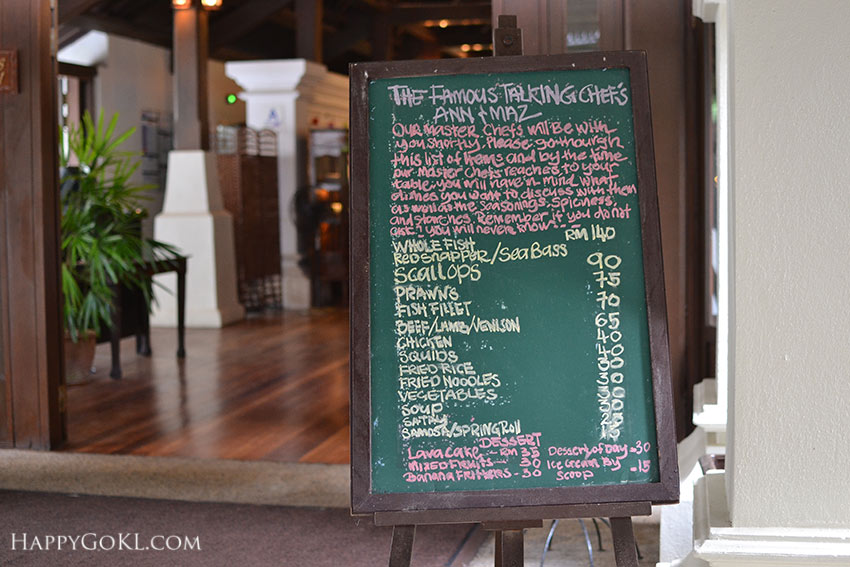 THE FAMOUS TALKING CHEF'S
ANN & MAZ
Our Master Chefs will Be with
you shortly. Please go through
this list of Items and by the time
our Master Chefs reaches to your
table, you will have in mind what
dishes you want to discuss with them
as well as the seasonings, Spiciness,
and starches. Remember if you do not
ask, you will never know...
RM 140
WHOLE FISH
RED SNAPPER/Sea BASS
SCallops 90
PRAWNS 75
FISH FILLET 70
BEEF/LAMB/VENISON 65
CHICKEN 40
SQUIDS 40
FRIED RICE
FRIED NOODLES
VEGETABLES
SOUP
SATAY
SAMOSA/SPRING ROLL
DESSERT
Lava Cake - RM 35 Dessert of Day = 30
MIXED FRUITS - 30 Ice Cream By -15
Banana Fritters - 30 Scoop
HAPPYGOKL.COM